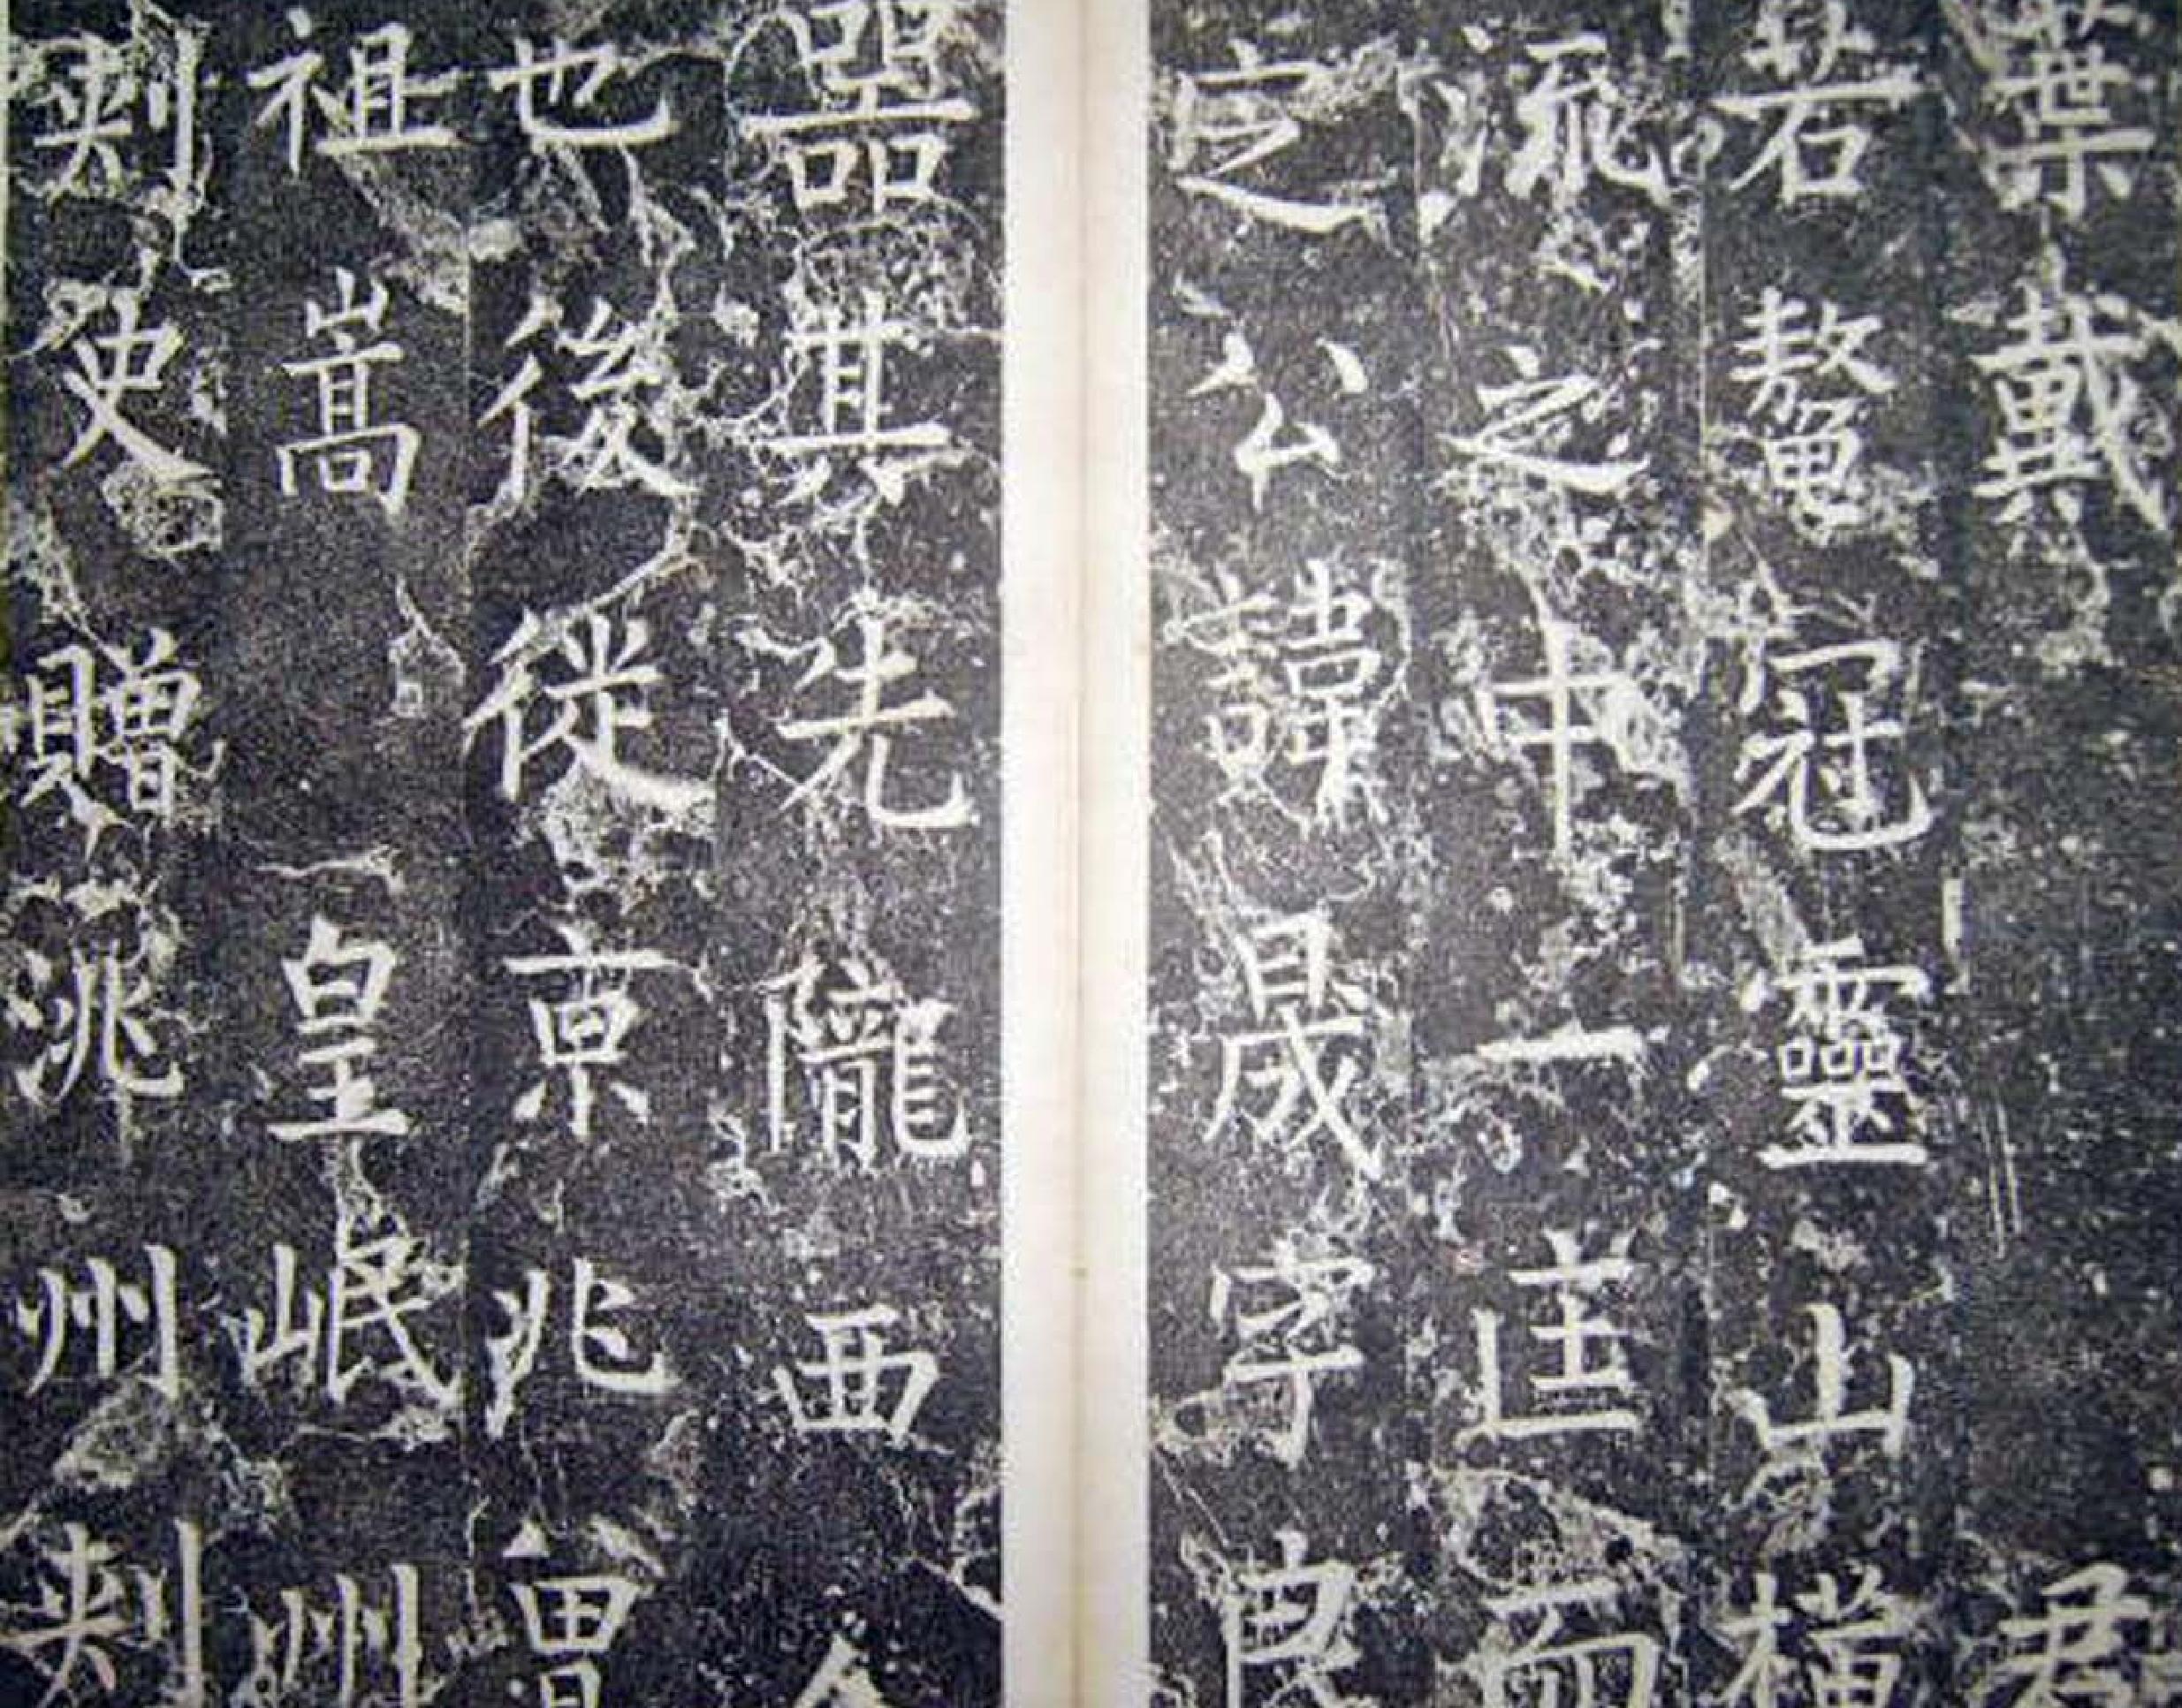 葉戴君
若鼇冠靈山橫
流之中一匡而
之公諱晟字良
器其先隴西人
也後徙京兆曾
祖嵩皇岷州
刺史贈洮州刺